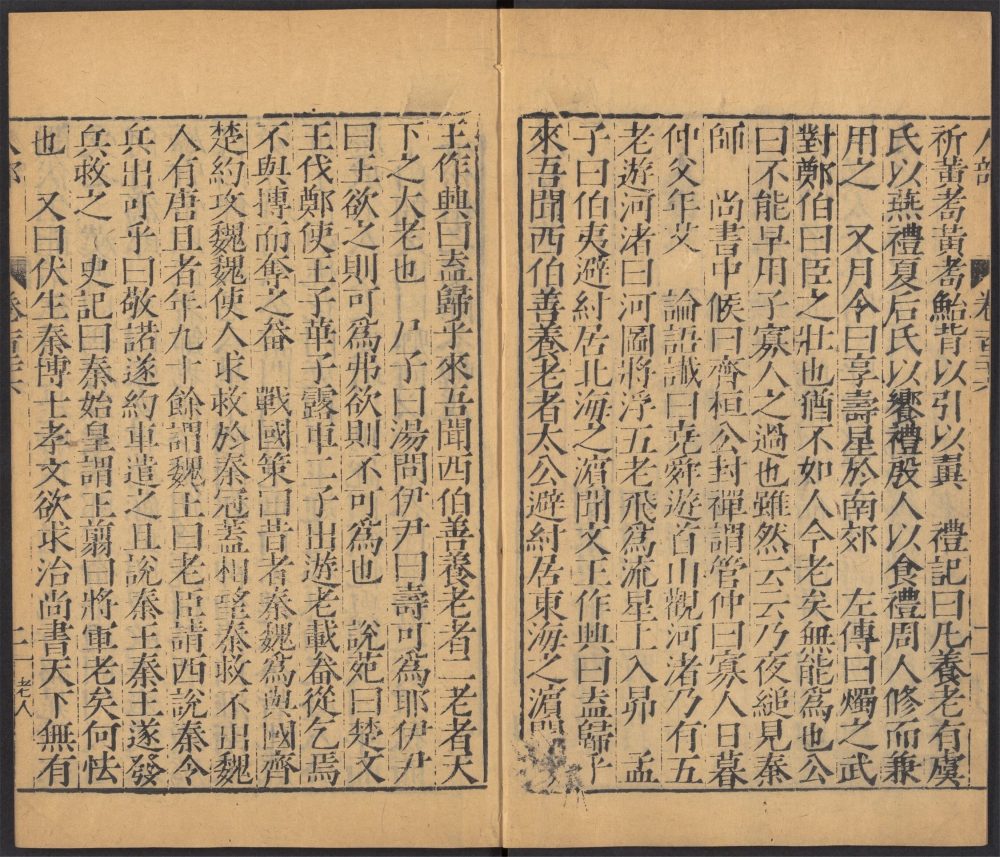 祈黃耇黃耇鮐背以引以翼　禮記曰凡養老有虞
氏以燕禮夏后氏以饗禮殷人以食禮周人修而兼
用之　又月令曰享壽星於南郊　左傳曰燭之武
對鄭伯曰臣之壯也猶不如人今老矣無能為也公
曰不能早用子寡人之過也雖然云云乃夜縋見秦
師　尚書中候曰齊桓公封禪謂管仲曰寡人日暮
仲父年艾　論語讖曰堯舜遊首山觀河渚乃有五
老遊河渚曰河圖將浮五老飛為流星上入昴　孟
子曰伯夷避紂居北海之濵聞文王作興曰盍歸乎
來吾聞西伯善養老者太公避紂居東海之濵聞
王作興曰盍歸乎來吾聞西伯善養老者二老者天
下之大老也　尸子曰湯問伊尹曰壽可為耶伊尹
曰王欲之則可為弗欲則不可為也　說苑曰楚文
王伐鄭使王子華子露車二子出遊老載畚從乞焉
不與搏而奪之畚　戰國策曰昔者秦魏為與國齊
楚約攻魏魏使人求救於秦冠蓋相望秦救不出魏
人有唐且者年九十餘謂魏王曰老臣請西說秦令
兵出可乎曰敬諾遂約車遣之且說秦王秦王遂發
兵救之　史記曰秦始皇謂王翦曰將軍老矣何怯
也　又曰伏生秦博士孝文欲求治尚書天下無有
老人